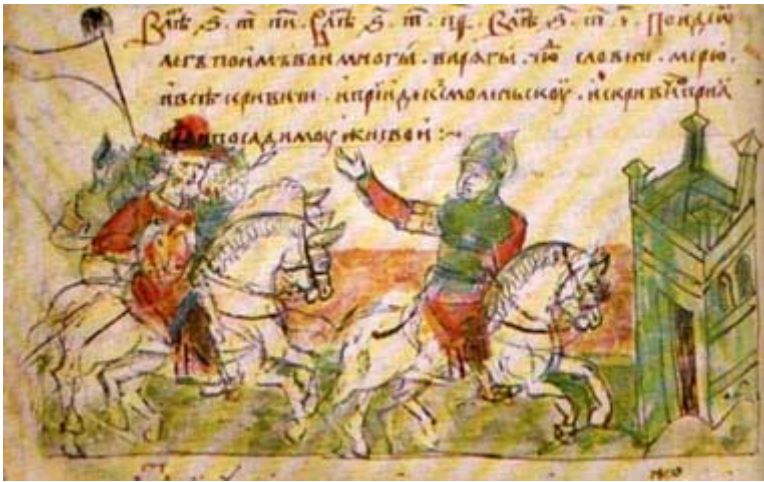 В лѣт ѕ. т пи. В лѣт ѕ. т пѳ. В лѣт ѕ. т ч. Поиде ѡ
легъ поимъ вои многы . варягы . чю словени . мерю .
и всѣ кривичи . и приид к смоленьскоу . и с кривичи прия
и посади моуж свои :~